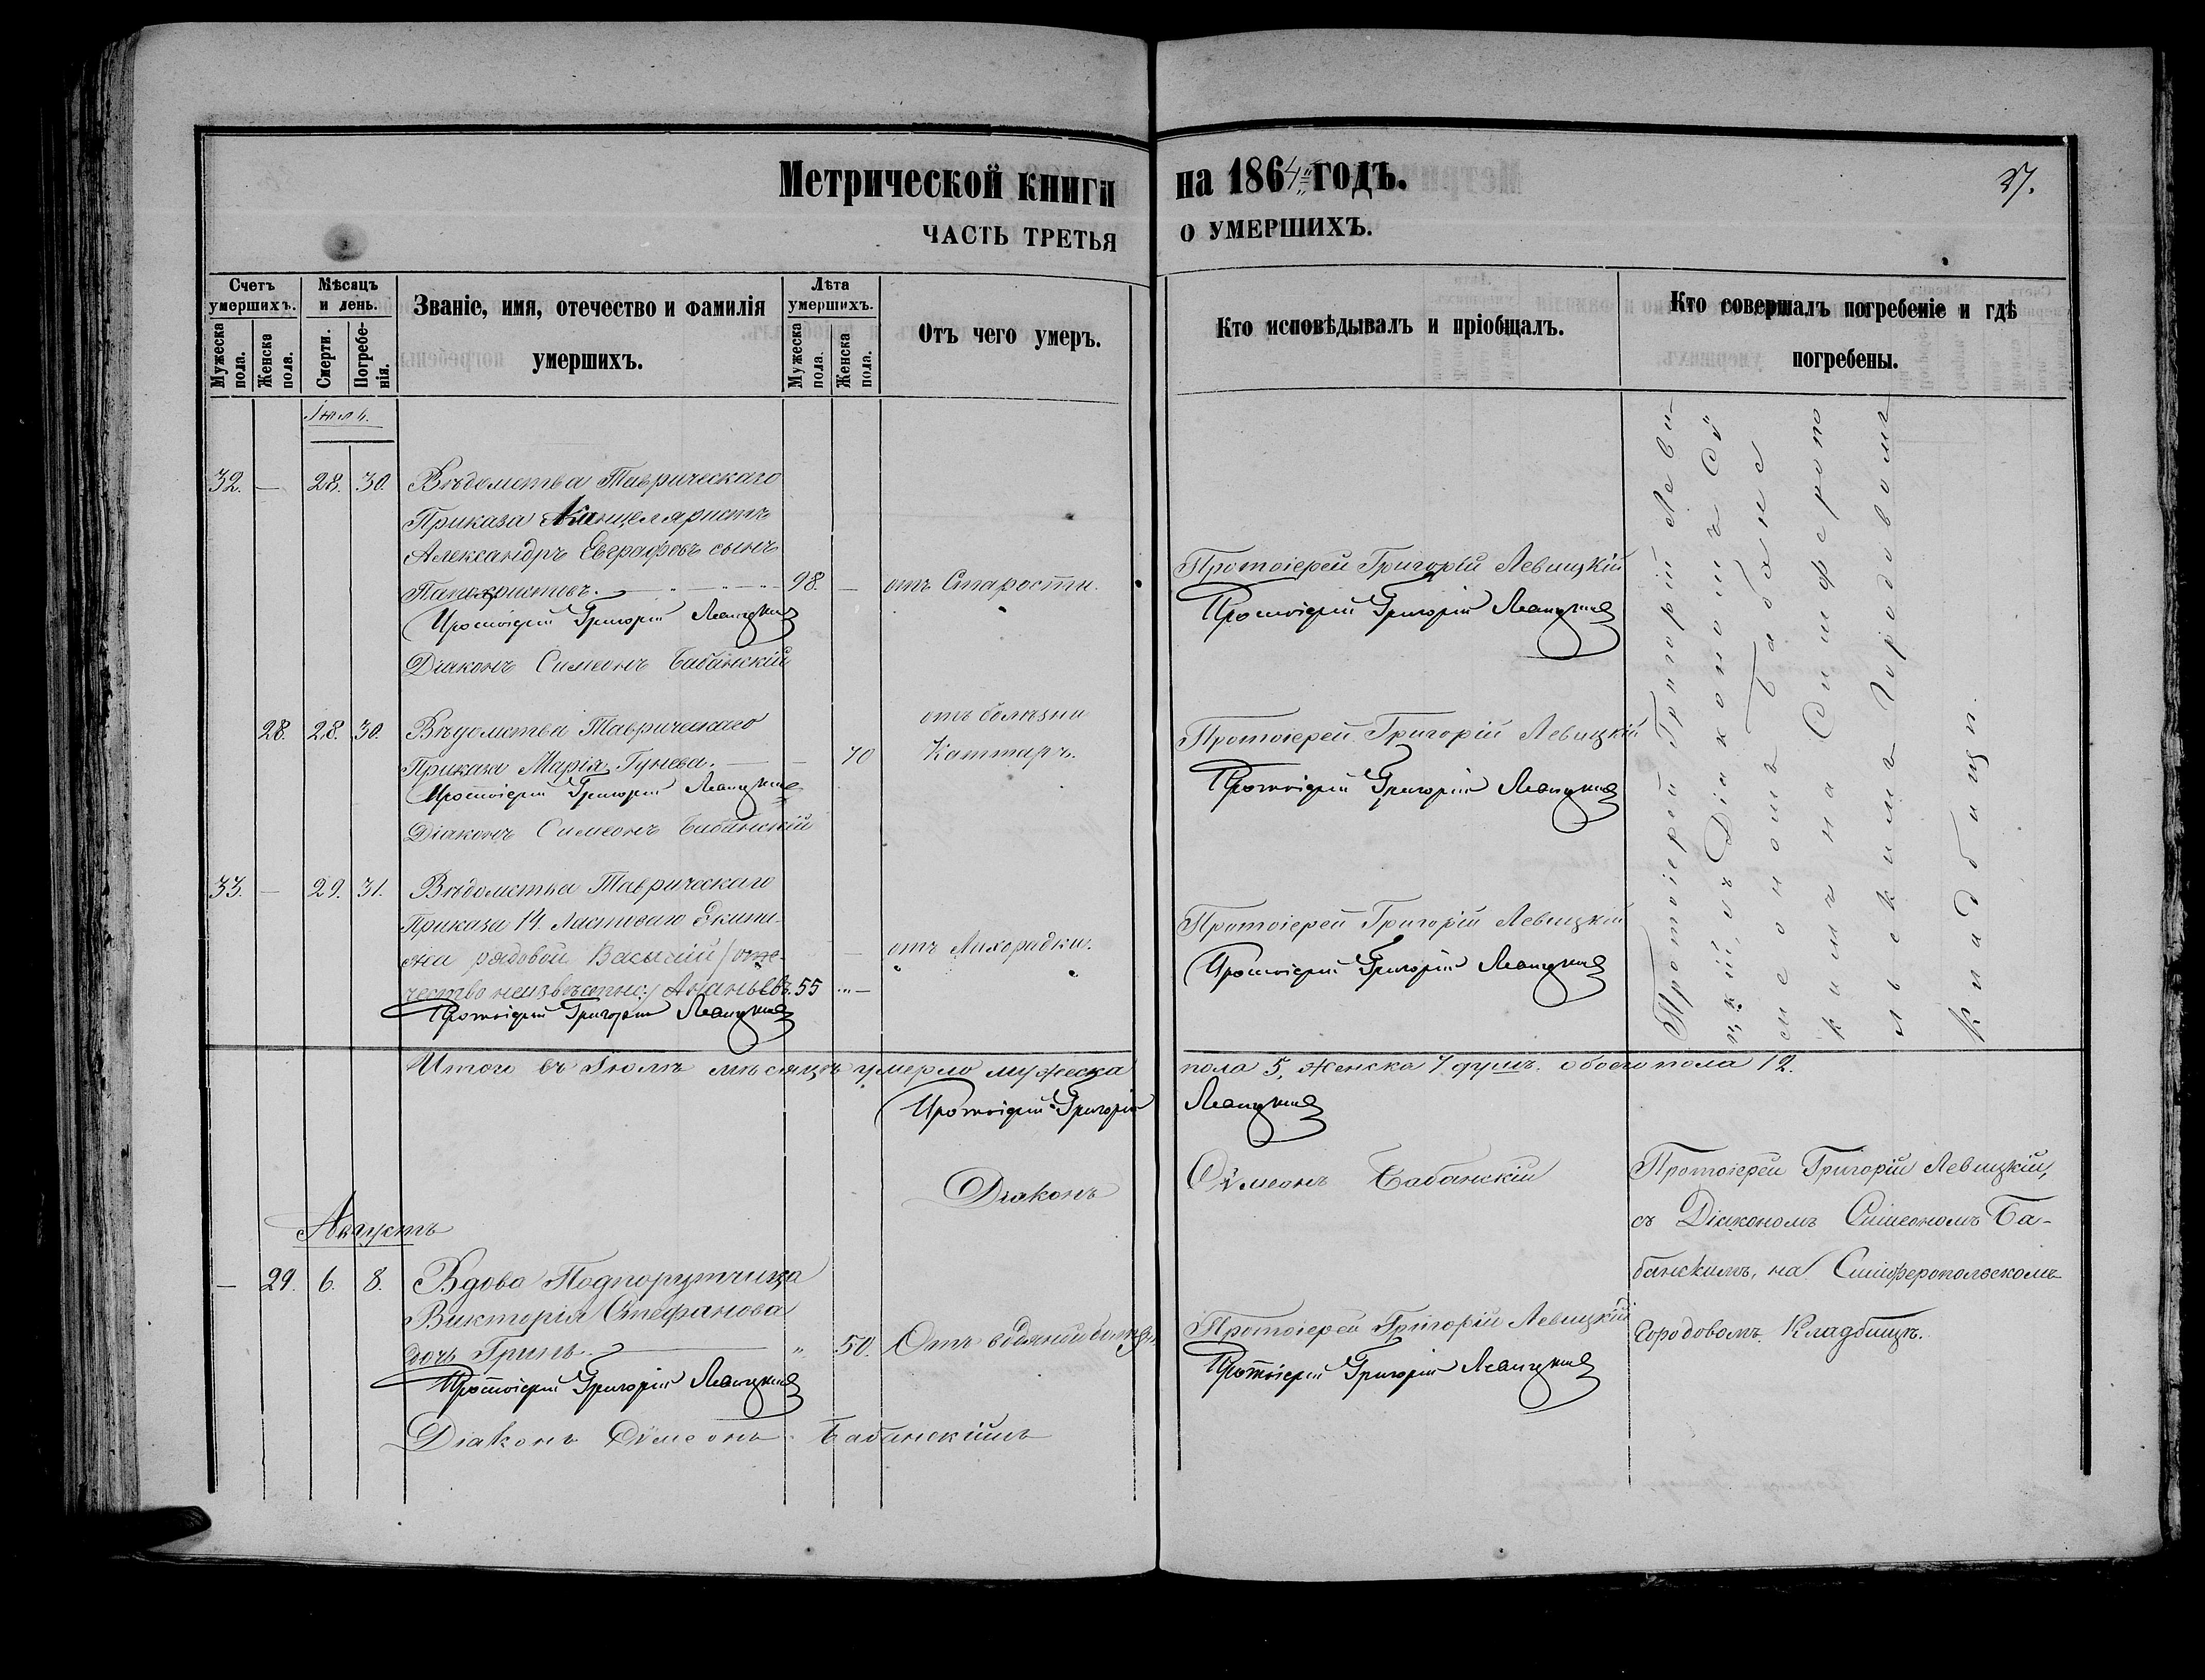 Метрической книги на 1864 годъ.
27.
ЧАСТЬ ТРЕТЬЯ О УМЕРШИХЪ.
Счетъ умершихъ.
Мужеска пола.
Женска пола.
Мѣсяцъ и день.
Смерти.
Погребенія.
Званіе, имя, отечество и фамилія умершихъ.
Лѣта умершихъ.
Мужеска пола.
Женска пола.
Отъ чего умеръ.
Кто исповѣдывалъ и пріобщалъ.
Кто совершалъ погребеніе и гдѣ погребены.
Іюль.
32. — 28. 30. Вѣдомства Таврическаго
Приказа Канцеляристъ
Александръ Евграфовъ сынъ
98. — отъ Старости.
Протоіерей Григорій Левицкій
Протоіерей Григорій Левицкій
Протоіерей Григорій Левицкій
Діаконъ Симеонъ Бабанскій
28. 28. 30. Вѣдомства Таврическаго
Приказа Марія Гунева. — — 70
отъ болѣзни
Каттаръ.
Протоіерей Григорій Левицкій
Протоіерей Григорій Левицкій
Протоіерей Григорій Левицкій
Діаконъ Симеонъ Бабанскій
33. — 29. 31. Вѣдомства Таврическаго
Приказа 14 Ластоваго Экипа-
жа рядовой Василій /оте-
чество неизвѣстно:/ Ананьевъ. 55 —
отъ Лихорадки.
Протоіерей Григорій Левицкій
Протоіерей Григорій Левицкій
Протоіерей Григорій Левицкій
Протоіерей Григорій Леви-
цкій, съ Діакономъ Си
меономъ Бабанс
кимъ на Симферопо
льскимъ Городовомъ
Кладбищѣ.
Итого въ Іюлѣ мѣсяцѣ умерло мужеска пола 5, женска 7 душъ. обоего пола 12.
Протоіерей Григорій Левицкій
Діаконъ Сѵмеонъ Бабанскій
Августъ
— 29. 6. 8. Вдова Подпоручица
Викторія Стефанова
дочь Гринь. — „ 50.
Протоіерей Григорій Левицкій
Протоіерей Григорій Левицкій
Протоіерей Григорій Левицкій
Діаконъ Сѵмеонъ Бабанскіимъ
Протоіерей Григорій Левицкій,
съ Діакономъ Симеономъ Ба-
банскимъ, на Симферопольскомъ
Городовомъ Кладбищѣ.